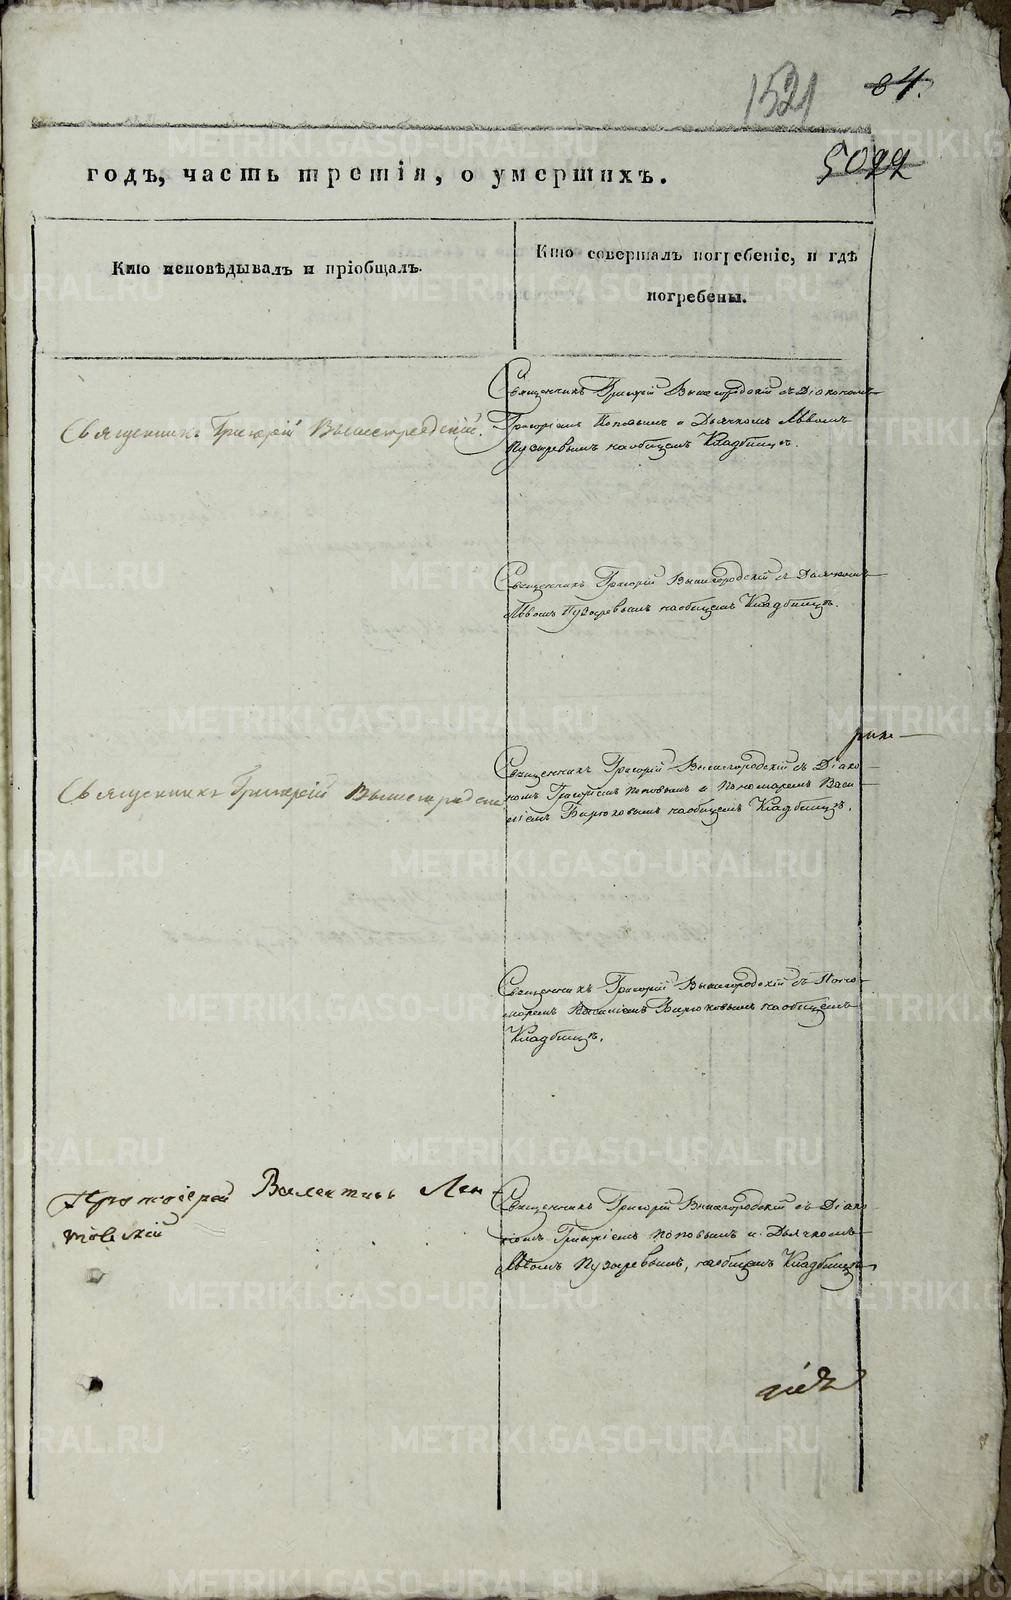 1521
84.
5022
годъ, часть третія, о умершихъ.
Кто исповѣдывалъ и пріобщалъ.
Кто совершалъ погребеніе, и гдѣ
погребены.
Священникъ Григорій Вышегородскій.
Священникъ Григорій Вышегородскій съ Діакономъ
Григоріемъ Поповымъ и Дьячкомъ Львомъ
Пузыревымъ на общемъ Кладбищѣ.
Священникъ Григорій Вышегородскій съ Дьячкомъ
Львомъ Пузыревымъ на общемъ Кладбищѣ.
Священникъ Григорій Вышегородскій
Священникъ Григорій Вышегородскій съ Діако-
номъ Григоріемъ Поповымъ и Пономаремъ Васи-
ліемъ Бирюковымъ на общемъ Кладбищѣ.
Священникъ Григорій Вышегородскій съ Поно-
маремъ Василіемъ Бирюковымъ на общемъ
Кладбищѣ.
Протоіерей Валентинъ Лен-
товскій
Священникъ Григорій Вышегородскій съ Діако-
номъ Григоріемъ Поповымъ и Дьячкомъ
Львомъ Пузыревымъ, на общемъ Кладбищѣ
METRIKI.GASO-URAL.RU